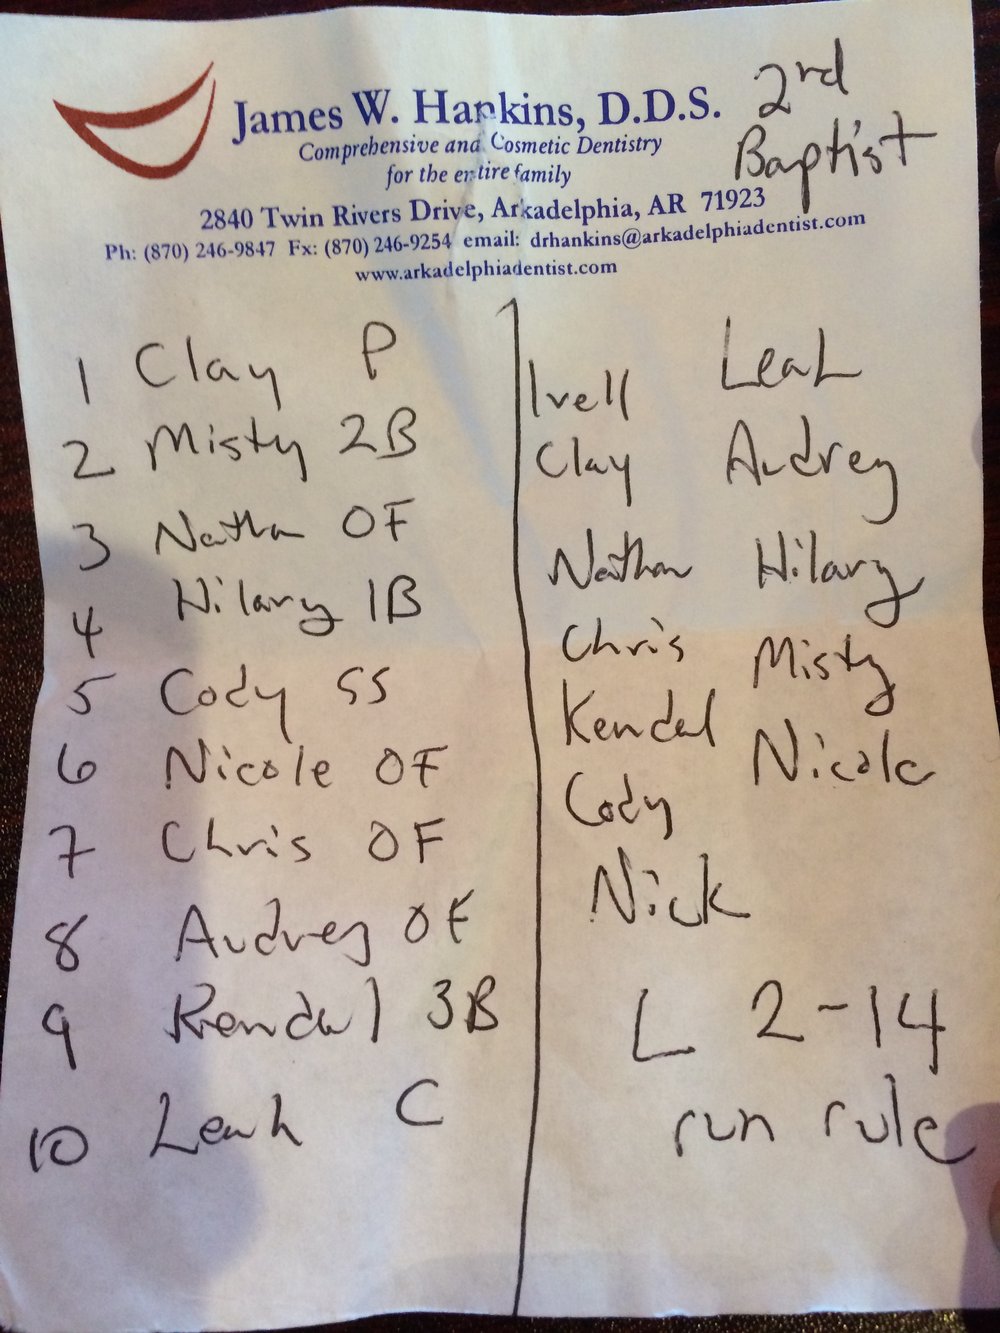 James W. Hankins, D.D.S.
Comprehensive and Cosmetic Dentistry
for the entire family
2840 Twin Rivers Drive, Arkadelphia, AR 71923
Ph: (870) 246-9847 Fx: (870) 246-9254 email: drhankins@arkadelphiadentist.com
www.arkadelphiadentist.com
2nd
Baptist
1 Clay P
2 Misty 2B
3 Nathan OF
4 Hilary 1B
5 Cody SS
6 Nicole OF
7 Chris OF
8 Audrey OF
9 Kendal 3B
10 Leah C
Ivell Leah
Clay Audrey
Nathan Hilary
Chris Misty
Kendal Nicole
Cody
Nick
L 2-14
run rule